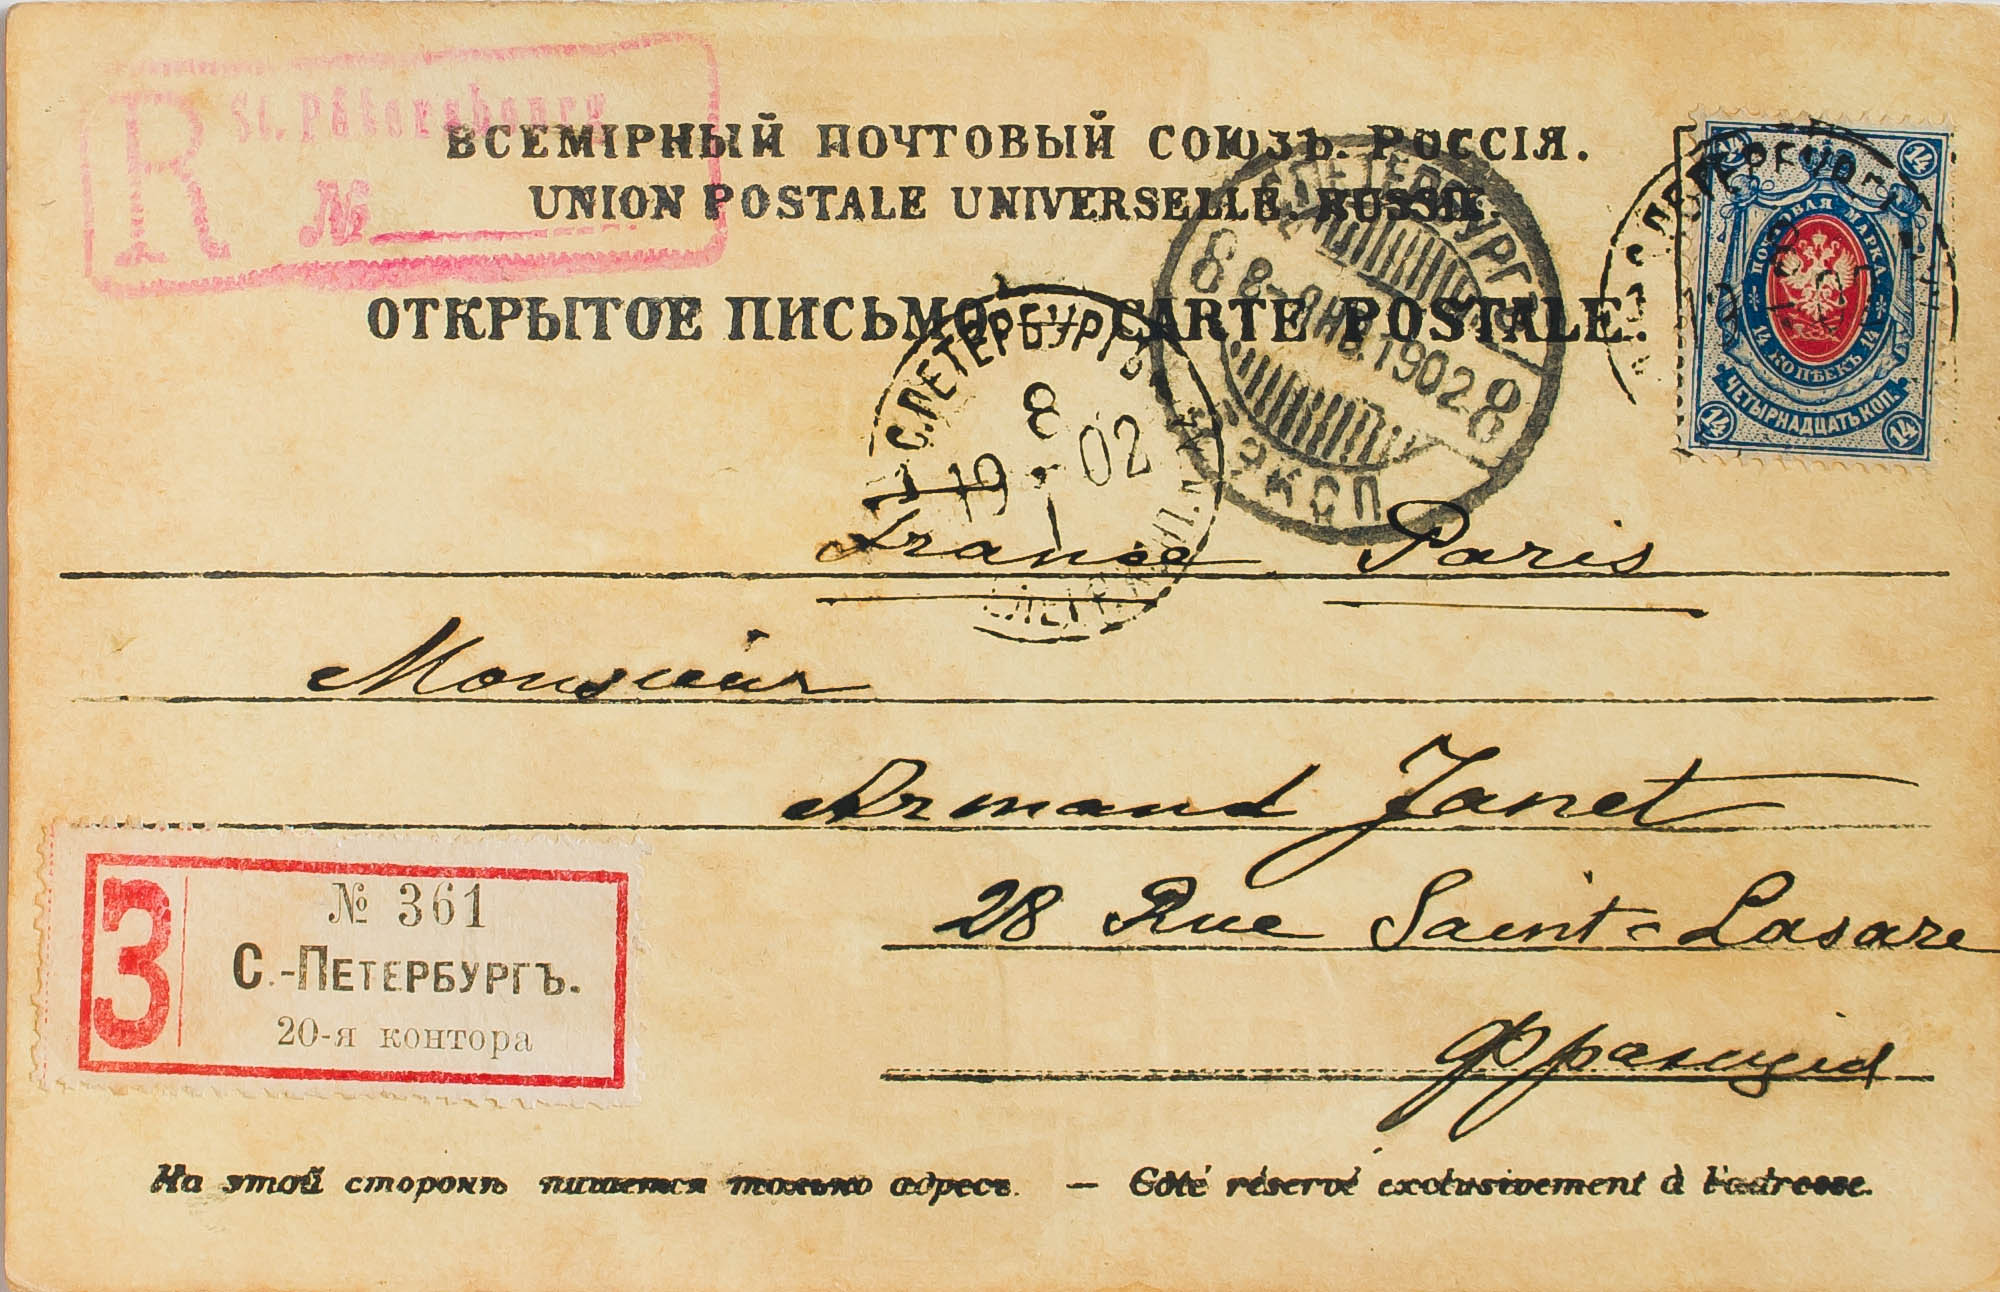 R St. Pétersbourg
№
ВСЕМІРНЫЙ ПОЧТОВЫЙ СОЮЗЪ. РОССІЯ.
UNION POSTALE UNIVERSELLE. RUSSIE.
ОТКРЫТОЕ ПИСЬМО. — CARTE POSTALE.
14 14
ПОЧТОВАЯ МАРКА
14 КОПѢЕКЪ 14
ЧЕТЫРНАДЦАТЬ КОП.
14 14
С.ПЕТЕРБУРГЪ
8 8-ЯНВ.1902 8
ЭКСП
С.ПЕТЕРБУРГЪ
8
19 02
1
France Paris
Monsieur
Armand Janet
28 Rue Saint-Lasare
Франція
З
№ 361
С.-ПЕТЕРБУРГЪ.
20-я контора
На этой сторонѣ пишется только адресъ. — Côté réservé exclusivement à l'adresse.